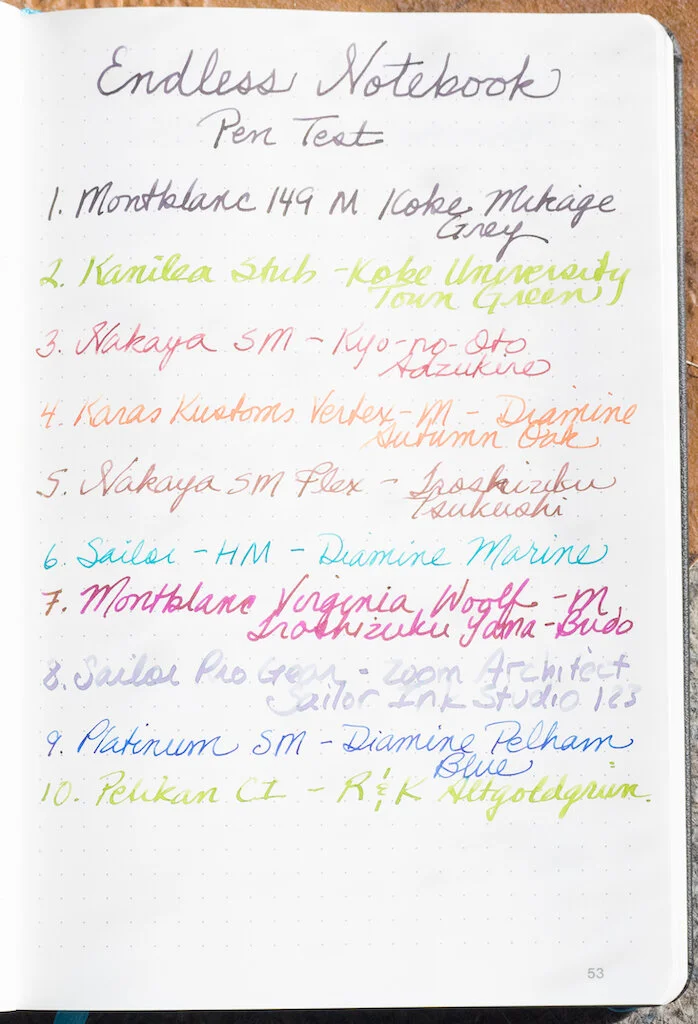 Endless Notebook
Pen Test
1. Montblanc 149 M Kobe Mikage
Grey
2. Kanilea Stub - Kobe University
Town Green
3. Nakaya SM - Kyo-no-Oto
Adzukiiro
4. Karas Kustoms Vertex - M - Diamine
Autumn Oak
5. Nakaya SM Flex - Iroshizuku
Tsukushi
6. Sailor - HM - Diamine Marine
7. Montblanc Virginia Woolf - M
Iroshizuku Yama-Budo
8. Sailor Pro Gear - Zoom Architect
Sailor Ink Studio 123
9. Platinum SM - Diamine Pelham
Blue
10. Pelikan CI - R & K Altgoldgrün.
53